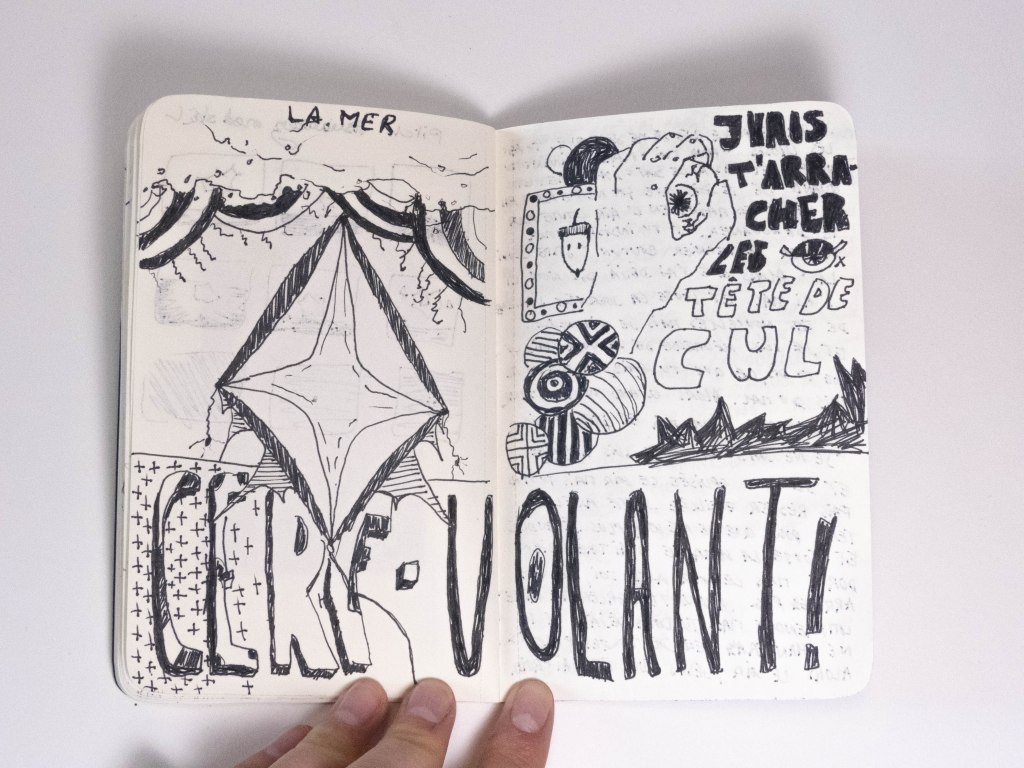 LA MER
JVAIS
T'ARRA-
CHER
LES
TÊTE DE
CUL
CERF-VOLANT!